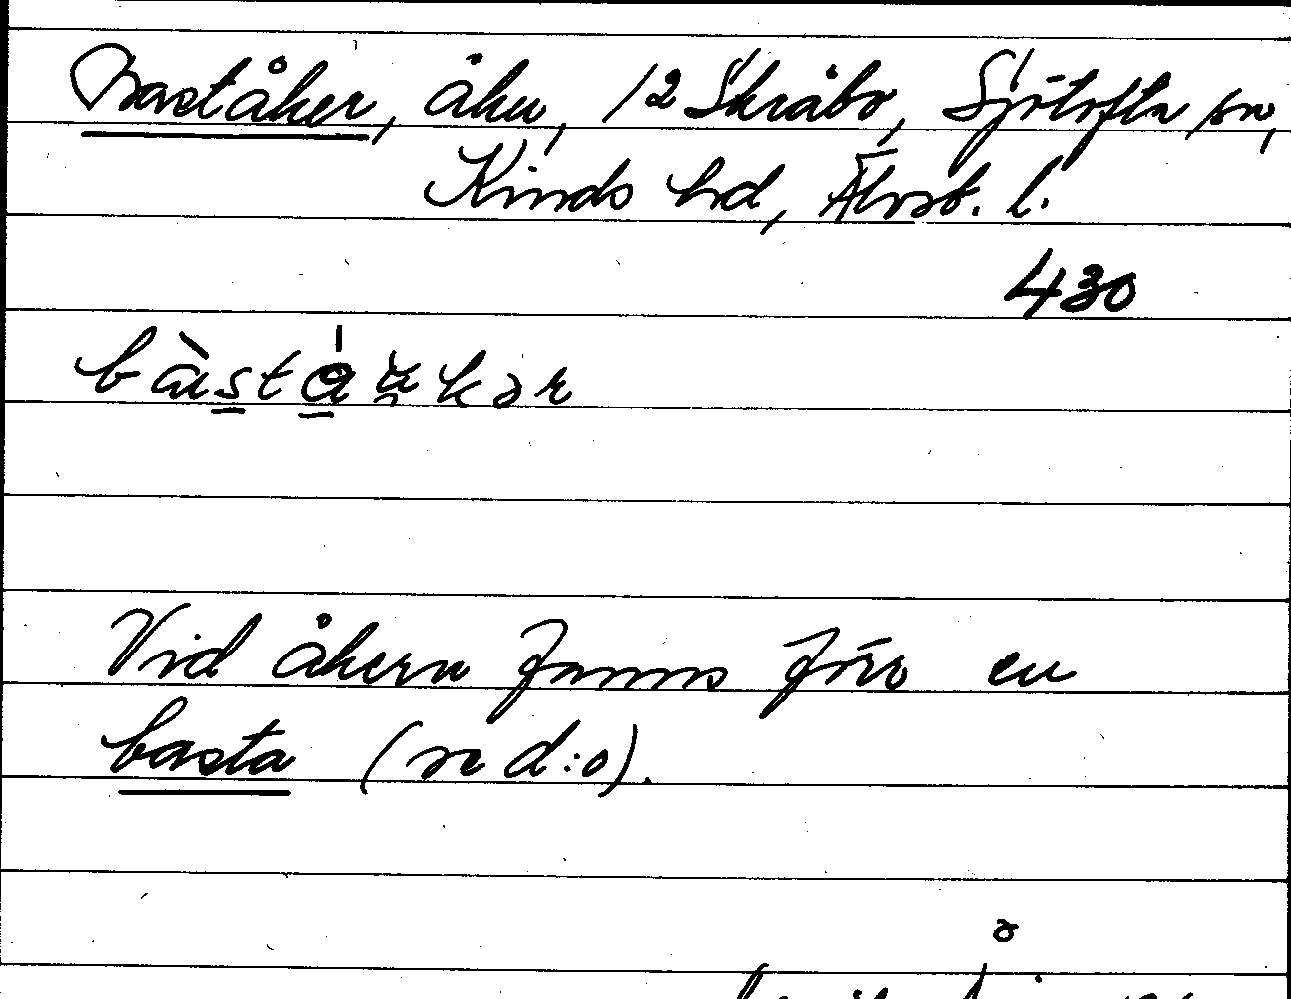 Baståker, åker, 12 Skråbo, Sjötofta sn,
Kinds hd, Älvsb. l.
430
Vid åkern fanns förr en
basta (se d:o).